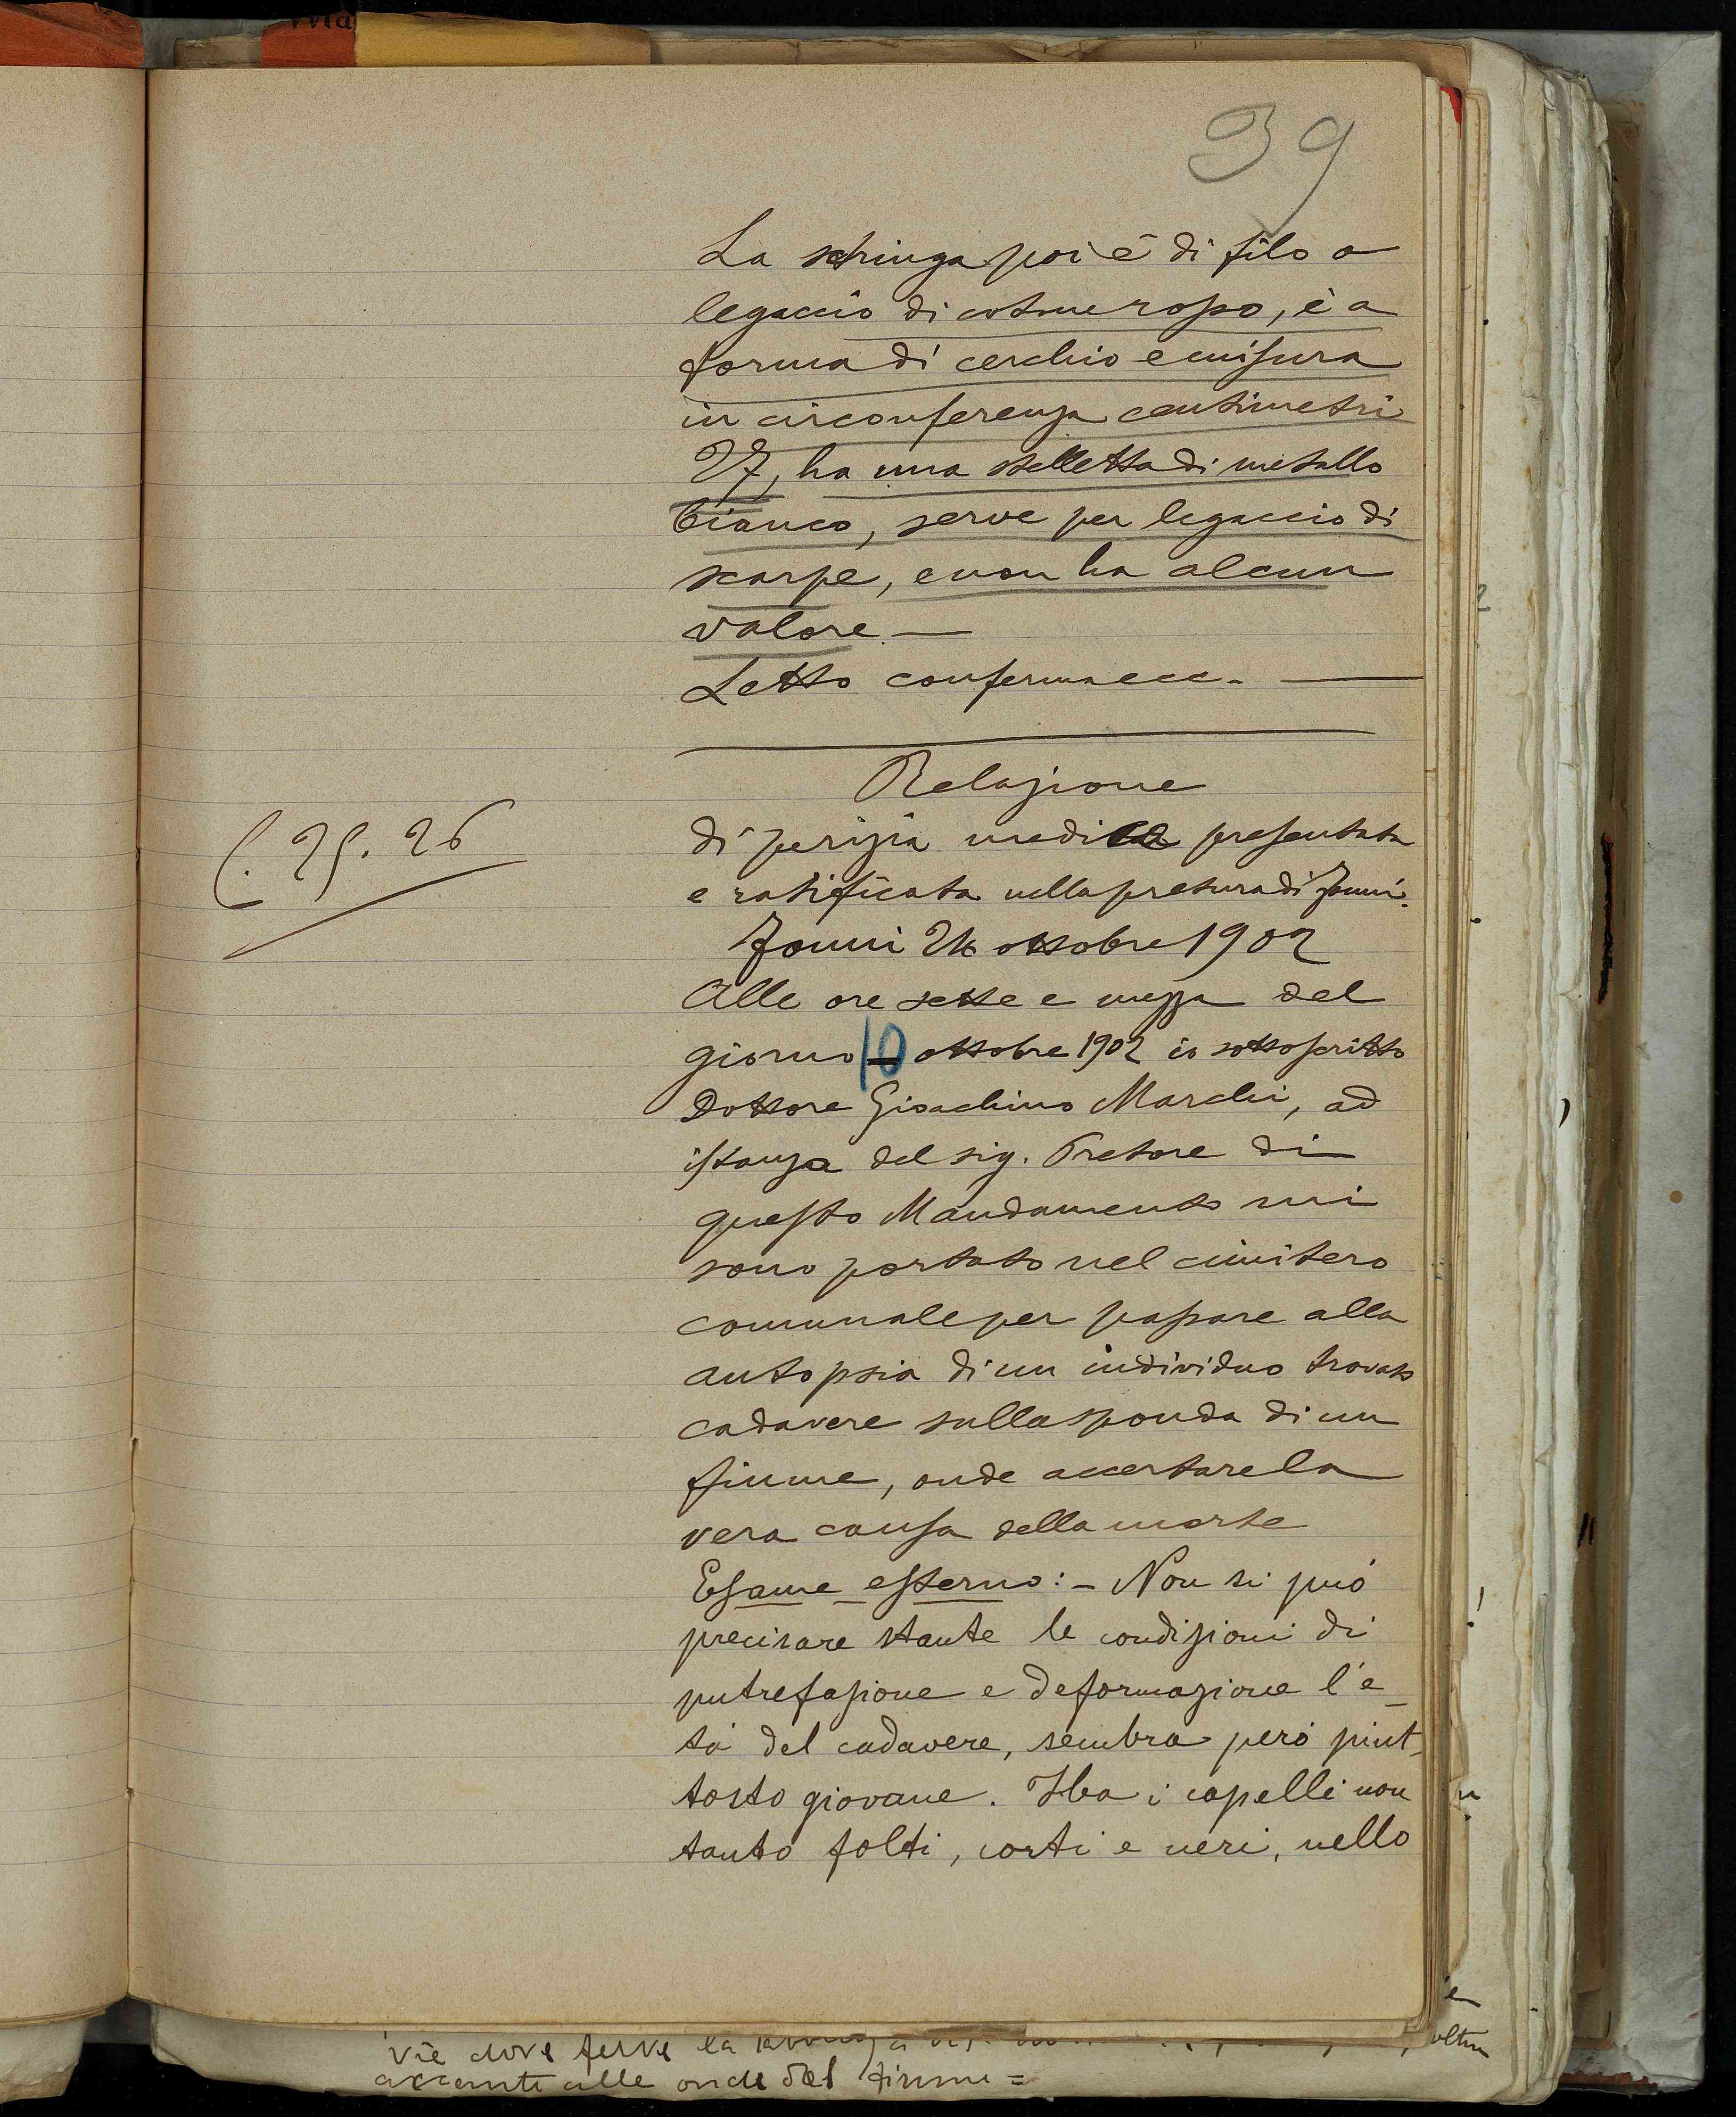 39
La schinga poi è di filo o
legaccio di cotone rosso, è a
forma di cerchio e misura
in circonferenza centimetri
27, ha una stelletta di metallo
bianco, serve per legaccio di
scarpe, e non ha alcun
valore.—
Letto conferma ecc. —
Relazione
C. 25. 26
di perizia medica presentata
e ratificata nella pretura di Fonni.
Fonni 24 ottobre 1902
Alle ore sette e mezza del
giorno 10 ottobre 1902 io sottoscritto
Dottore Gioachino Marchi, ad
istanza del sig. Pretore di
questo Mandamento mi
sono portato nel cimitero
comunale per passare alla
autopsia di un individuo trovato
cadavere sulla sponda di un
fiume, onde accertare la
vera causa della morte
Esame esterno:- Non si può
precisare stante le condizioni di
putrefazione e deformazione l'e_
tà del cadavere, sembra però piut_
tosto giovane. Ha i capelli non
tanto folti, corti e neri, nello
vie dove serve la
accanto alle onde del fiume =